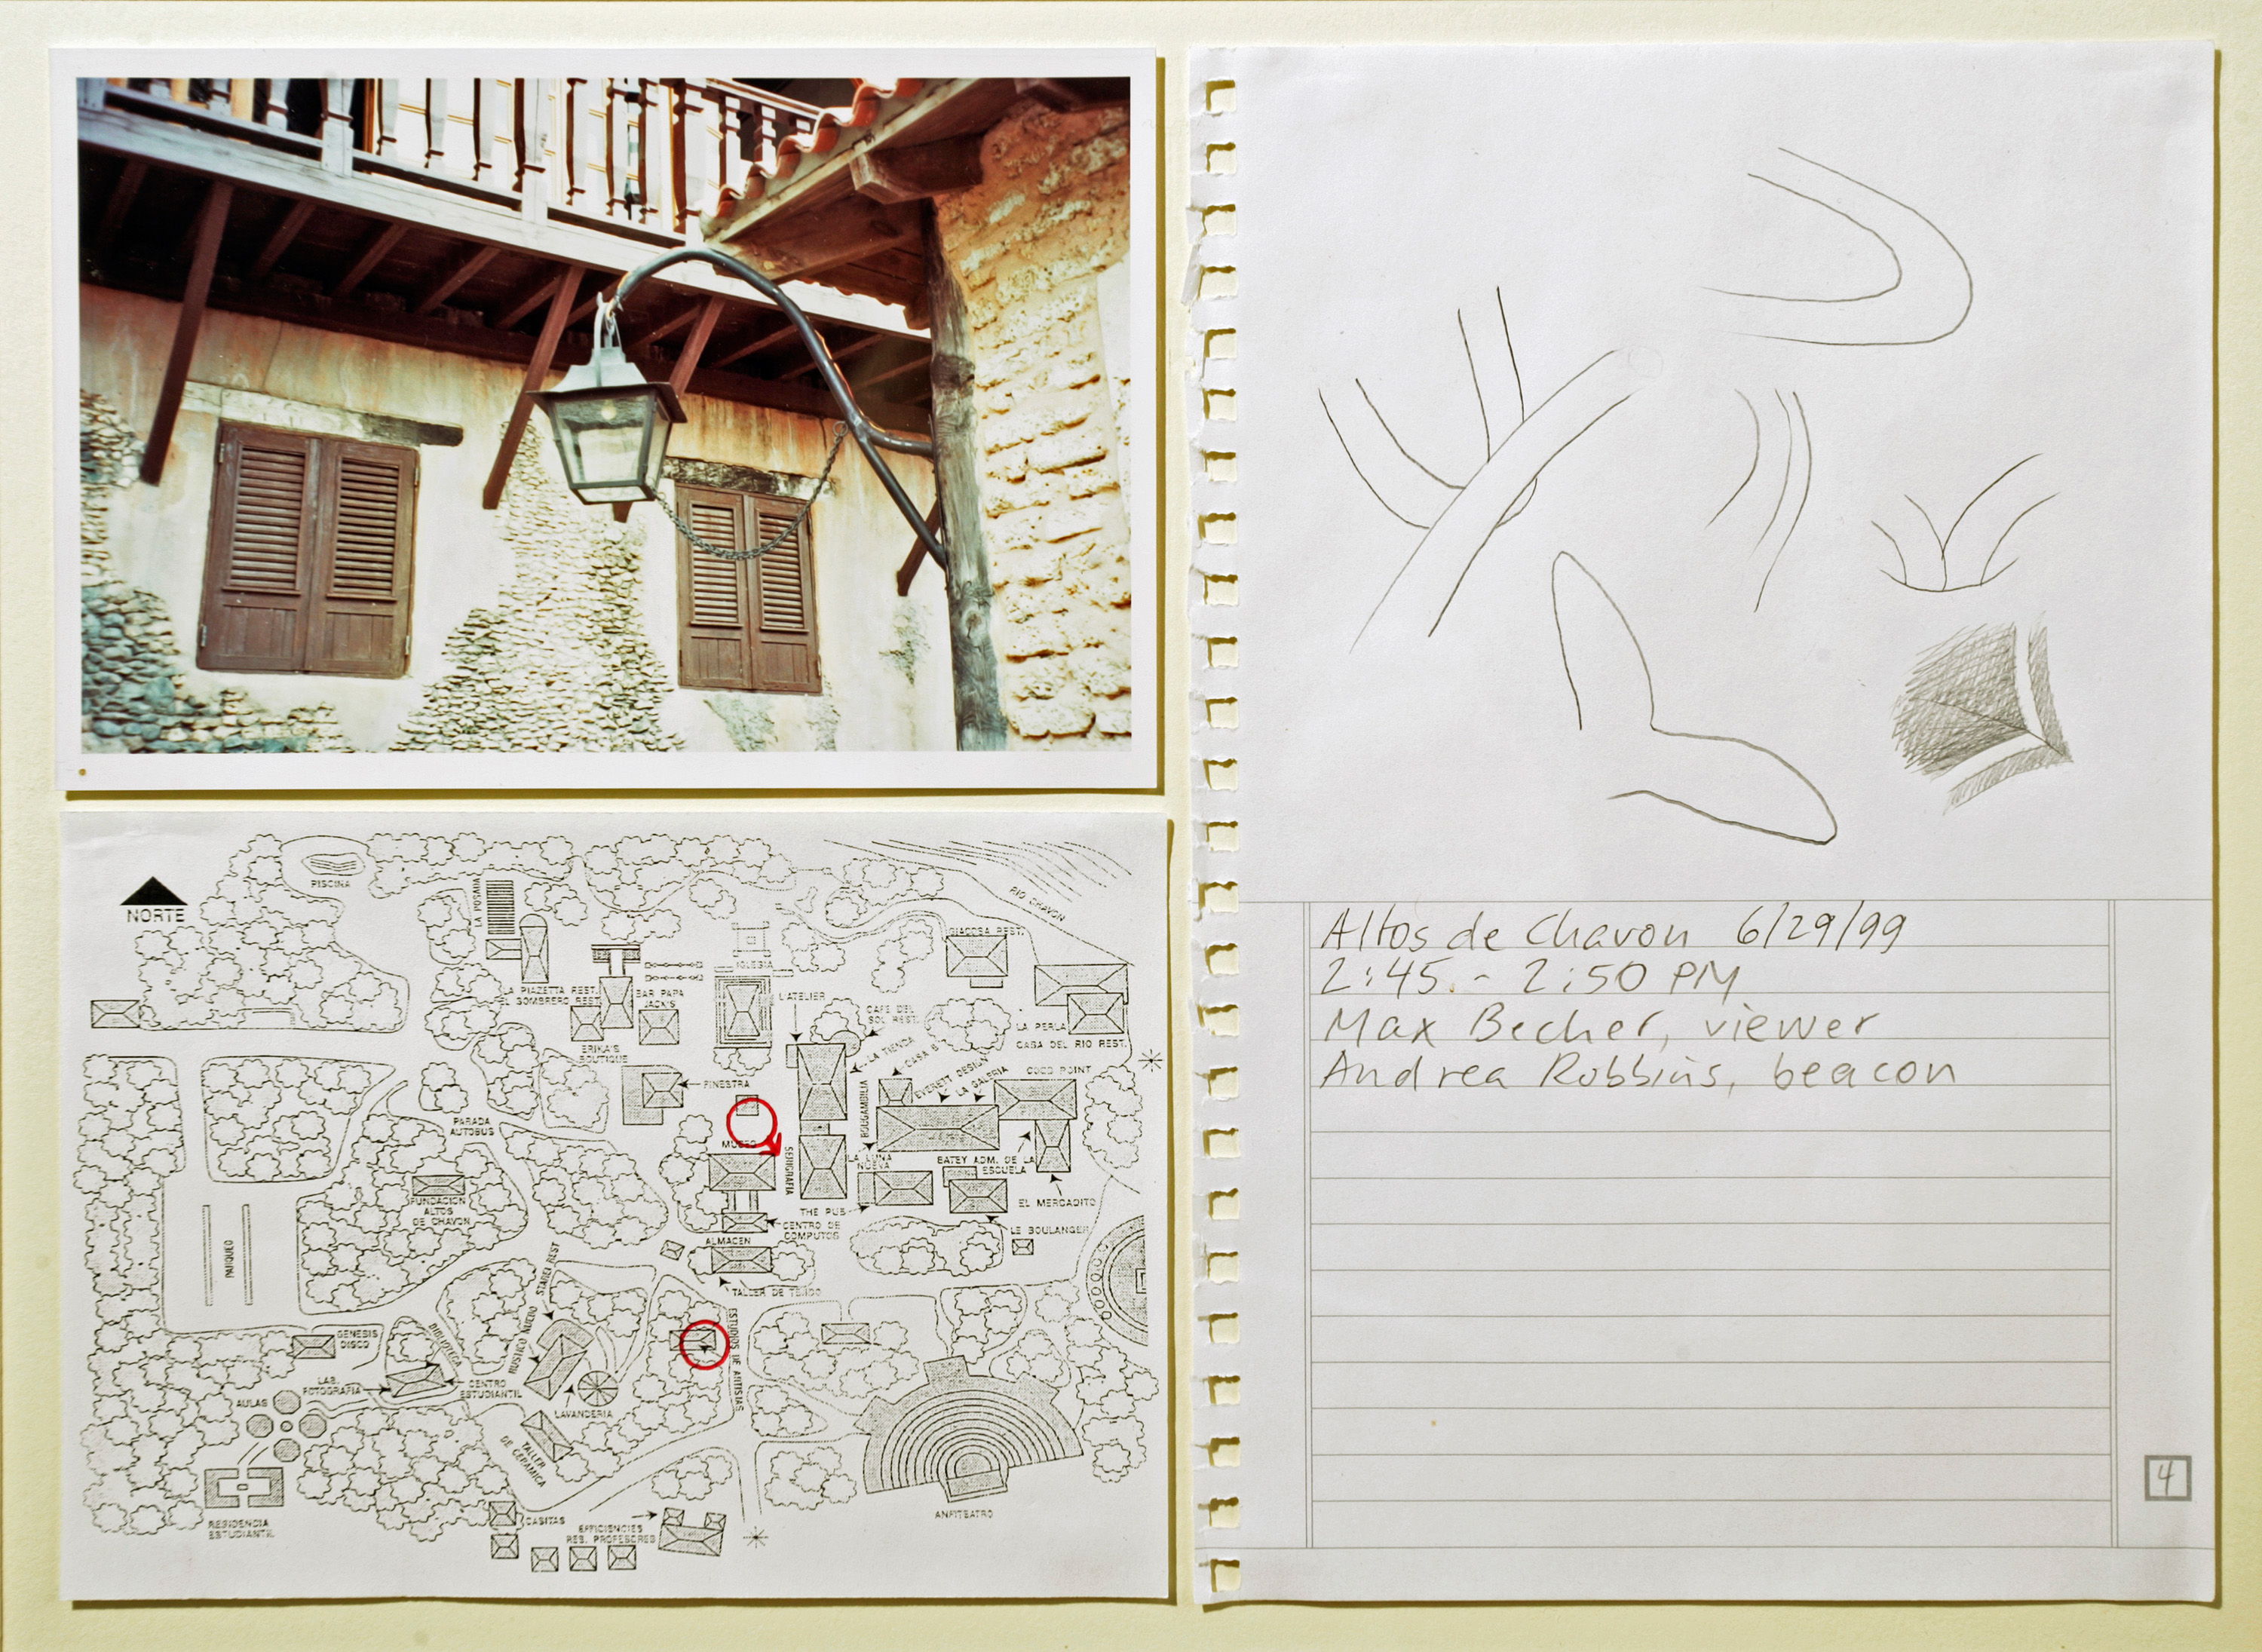 NORTE
PISCINA
LA POSADA
RIO CHAVON
GIACOSA REST.
IGLESIA
LA PIAZETTA REST.
EL SOMBRERO REST.
BAR PAPA
JACK'S
L'ATELIER
CAFE DEL
SOL REST.
LA PERLA
CASA DEL RIO REST.
ERIKA'S
BOUTIQUE
LA TIENDA
CASA
FINESTRA
EVERETT DESIGN
LA GALERIA
COCO POINT
BOUGAMBILIA
PARADA
AUTOBUS
MUSEO
SERIGRAFIA
LA LUNA
NUEVA
BATEY ADM. DE LA
ESCUELA
EL MERCADITO
FUNDACION
ALTOS
DE CHAVON
THE PUB
CENTRO DE
COMPUTOS
LE BOULANGER
PARQUEO
ALMACEN
TALLER DE TEJIDO
ESTUDIOS DE ARTISTAS
GENESIS
DISCO
BIBLIOTECA
LAB.
FOTOGRAFIA
CENTRO
ESTUDIANTIL
AULAS
LAVANDERIA
TALLER
DE CERAMICA
RESIDENCIA
ESTUDIANTIL
CASITAS
EFFICIENCIES
RES. PROFESORES
ANFITEATRO
Altos de Chavon 6/29/99
2:45 - 2:50 PM
Max Becher, viewer
Andrea Robbins, beacon
4